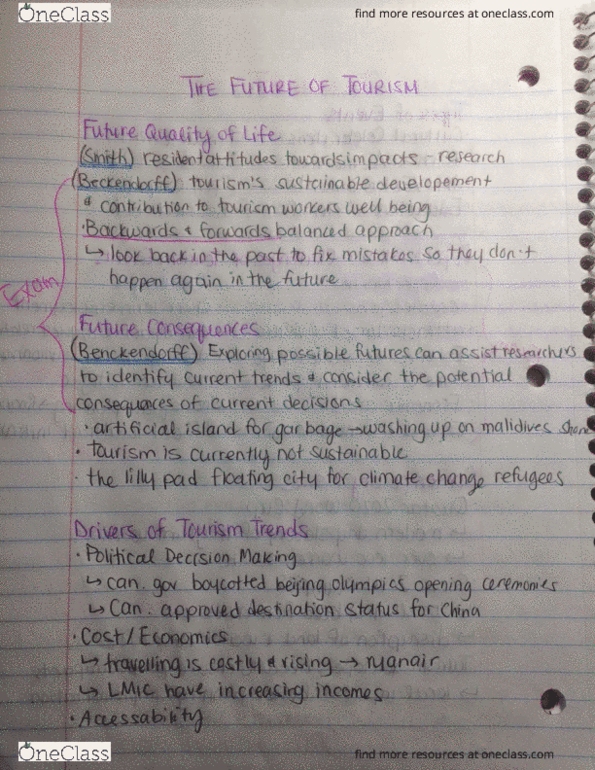 OneClass
find more resources at oneclass.com
THE FUTURE OF TOURISM
Future Quality of Life
(Smith) resident attitudes towards impacts research
(Beckendorff) tourism's sustainable developement
& contribution to tourism workers well being
· Backwards & forwards balanced approach
↳ look back in the past to fix mistakes so they don't
happen again in the future
Exam
Future Consequences
(Benckendorff) Exploring possible futures can assist researchers
to identify current trends & consider the potential
consequances of current decisions
· artificial island for garbage → washing up on malidives shore
· tourism is currently not sustainable
· the lilly pad floating city for climate change refugees
Drivers of Tourism Trends
· Political Decision Making
↳ can. gov boycotted beijing olympics opening ceremonies
↳ Can. approved destination status for China
· Cost/Economics
↳ travelling is costly & rising → ryanair
↳ LMIC have increasing incomes
· Accessability
OneClass
find more resources at oneclass.com